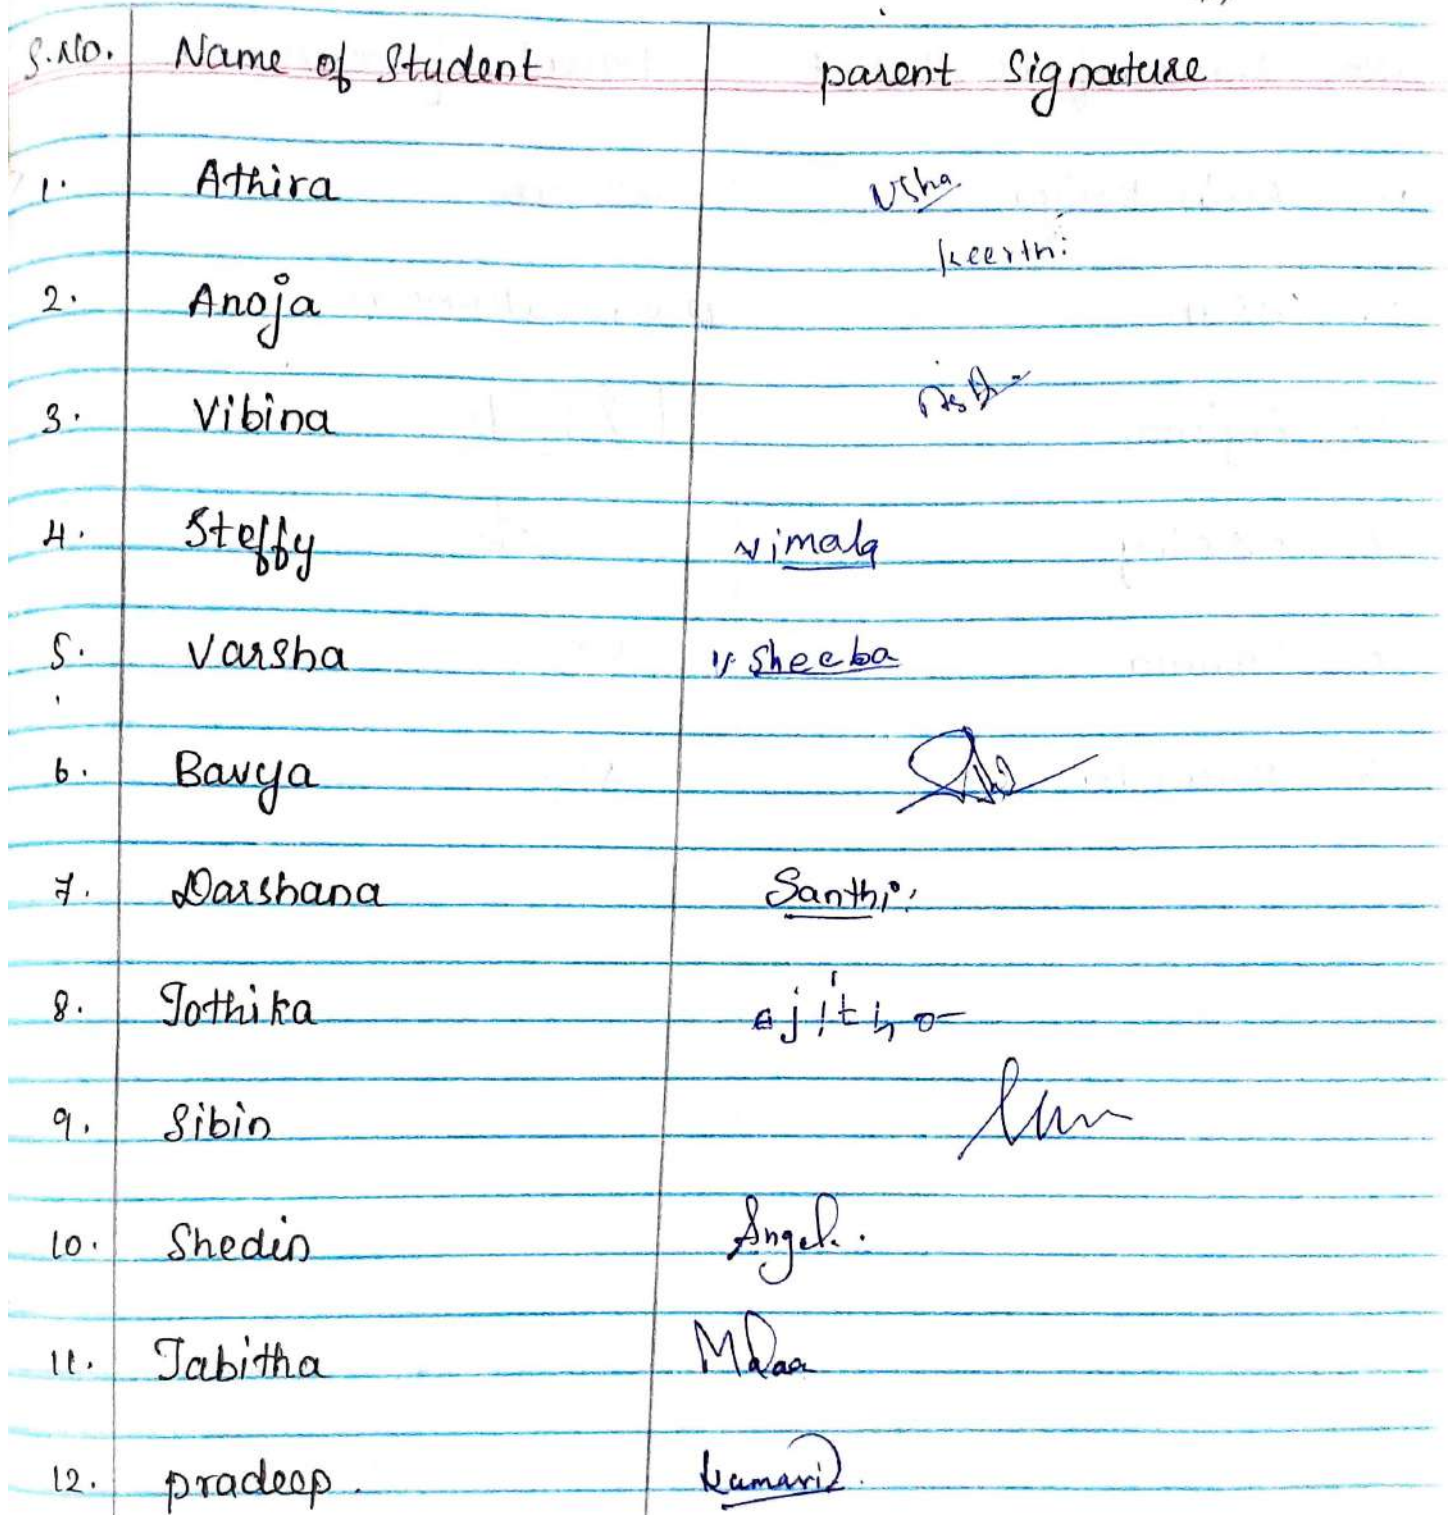 S.No. Name of Student parent Signature
1. Athira Usha
Keerthi
2. Anoja
3. Vibina
4. Steffy Vimala
5. Varsha V. Sheeba
6. Bavya
7. Darshana Santhi
8. Jothika ajitha
9. Sibin
10. Shedin Angel.
11. Tabitha
12. pradeep. Kumari